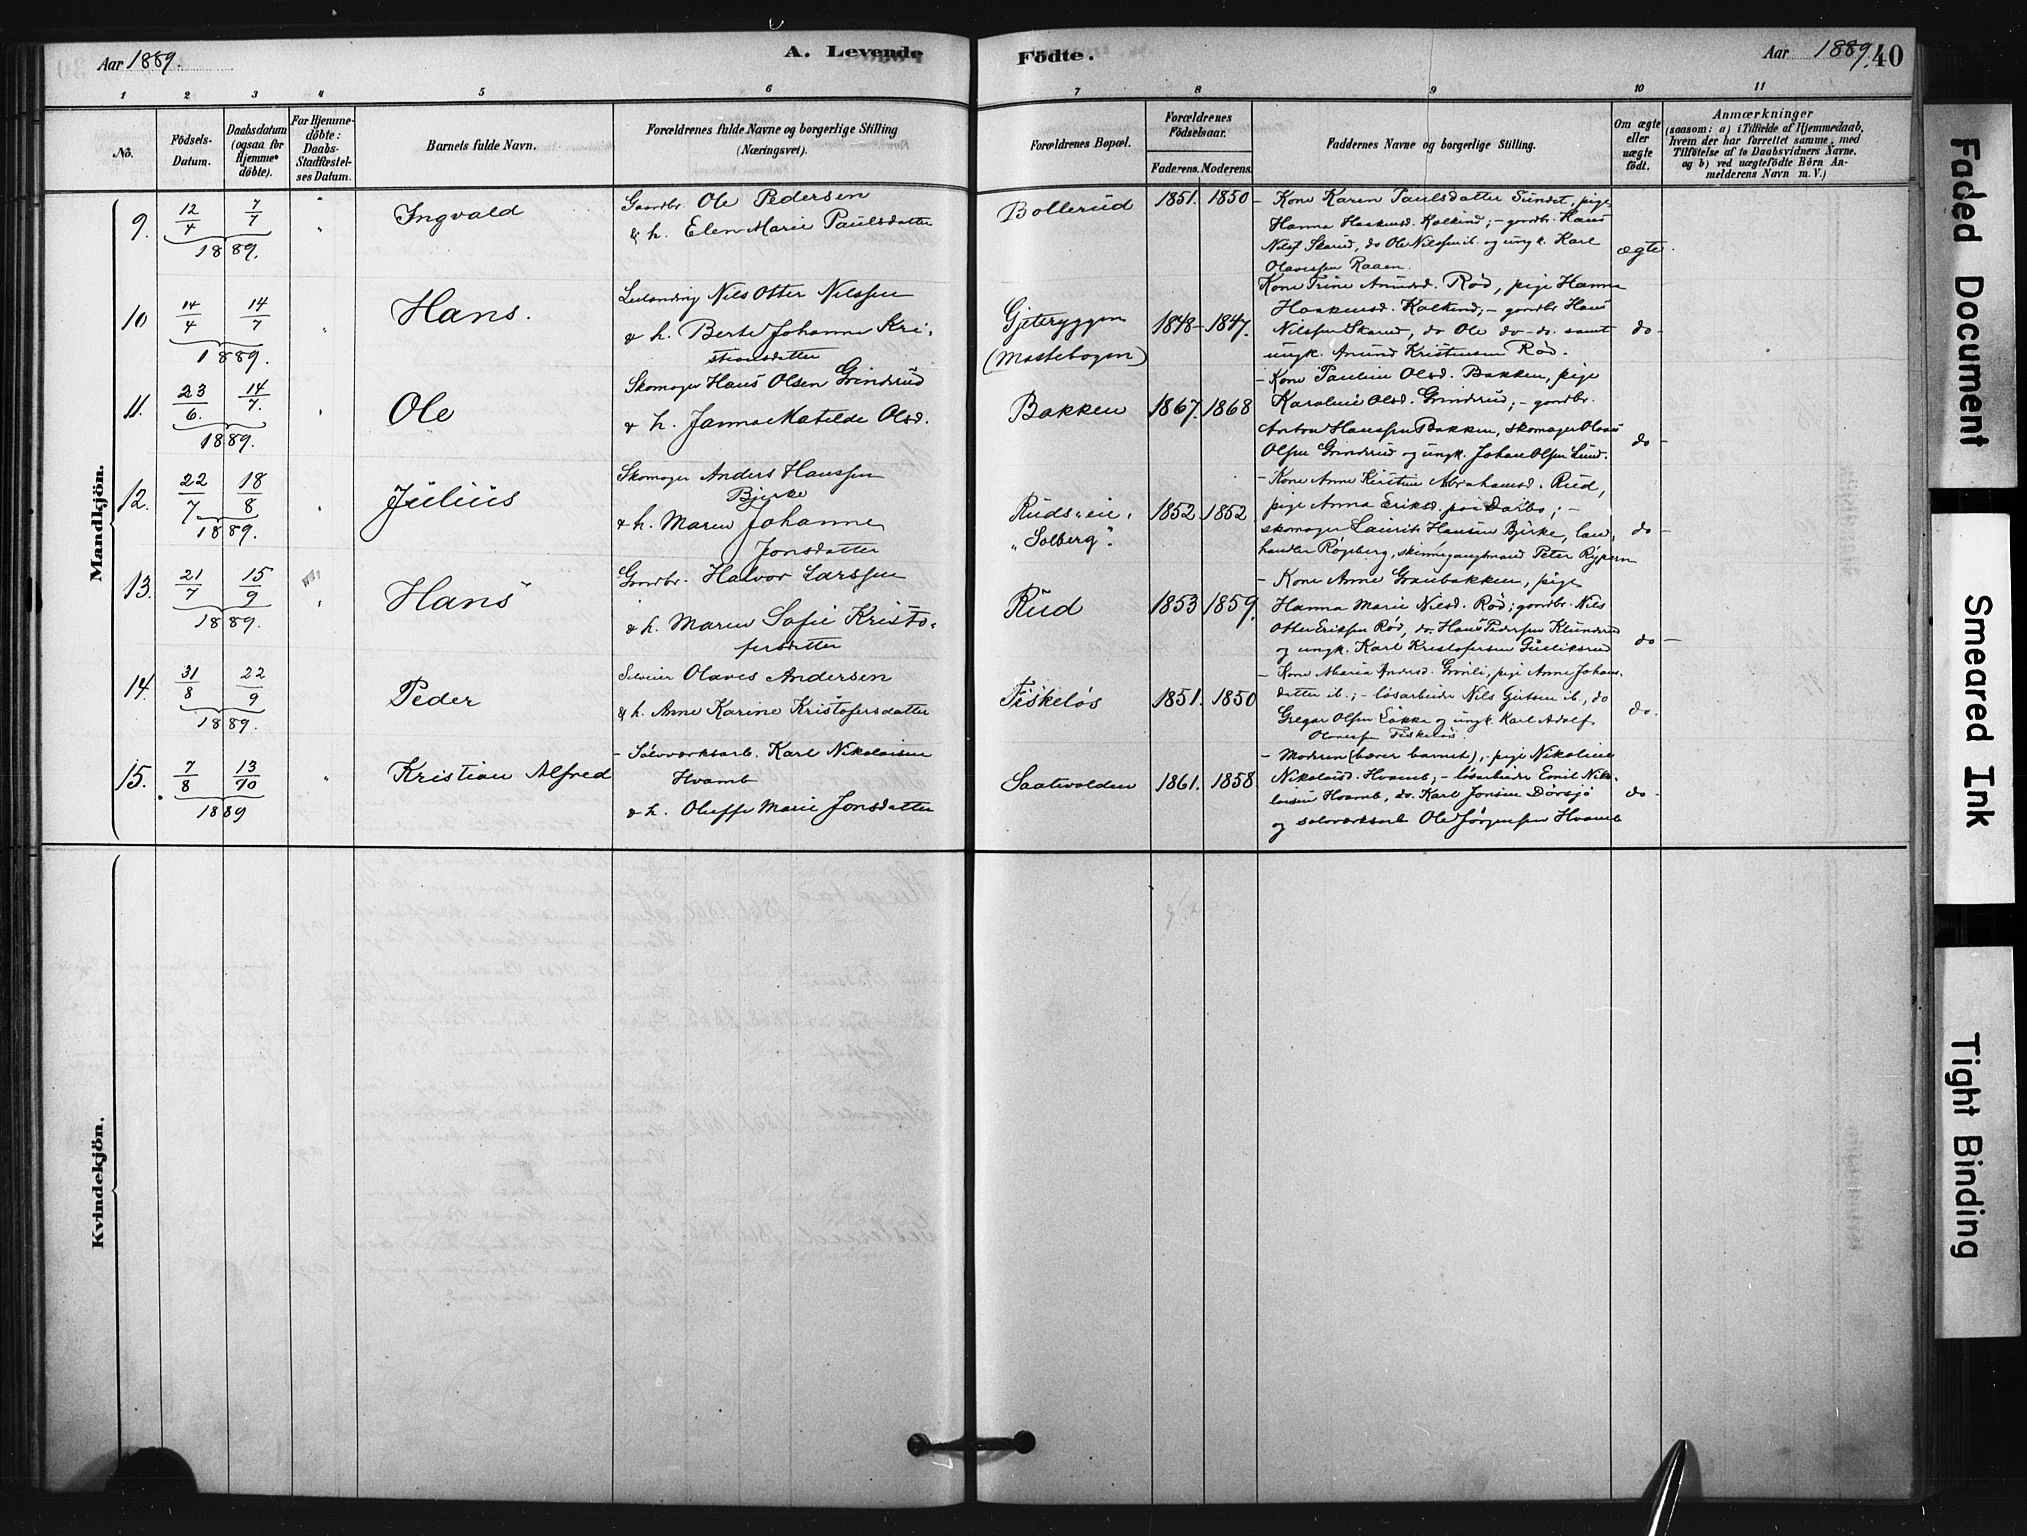 Aar 1889.
A. Levende
Födte.
Aar 1889.
40
1 2 3 4 5 6 7 8 9 10 11
No.
Födsels-
Datum.
Daabsdatum
(ogsaa for
Hjemme-
döbte).
For Hjemme-
döbte:
Daabs-
Stadfæstel-
ses Datum.
Barnets fulde Navn.
Forældrenes fulde Navne og borgerlige Stilling
(Næringsvei).
Forældrenes Bopæl.
Forældrenes
Födselsaar.
Faderens. Moderens.
Faddernes Navne og borgerlige Stilling.
Om ægte
eller
uægte
födt.
Anmærkninger
(saasom: a) i Tilfælde af Hjemmedaab,
hvem der har forrettet samme, med
Tilföielse af to Daabsvidners Navne,
og b) ved uægtefödte Börn An-
melderens Navn m. V.)
Mandkjön.
9. 12/4 7/7 1889. Ingvald
Gaardbr. Ole Pedersen
& h. Elen Marie Paulsdatter
Bollerud 1851. 1850
- Kone Karen Paulsdatter Sundet, pige
Hanna Haakensd. Kolkind; - gaardbr. Hans
Nilss. Skarud, do Ole Nilssen ib. og ungk. Karl
Olavessen Raaen.
ægte
10 14/4 14/7 1889. Hans.
Nils Otter Nilssen
& h. Berte Johanne Kri-
stiansdatter
Gjeteryggen
(Mastebogen)
1848 - 1847.
Kone Trine Amundsd. Rød, pige Hanna
Haakensd. Kolkind; - gardbr Hans
Nilssen Skarud, do Ole do - do. samt
ungk. Amund Kristensen Rød.
do -
11. 23/6. 14/7. 1889. Ole
Skomager Hans Olsen Grinderud
& h. Janna Matilde Olsd.
Bakken 1867. 1868
- Kone Pauline Olsd. Bakken, pige
Karoline Olsd. Grinderud; - gardbr.
Anton Hanssen Bakken, skomager Olaus
Olsen Grinderud og ungk. Johan Olsen Lund.
do -
12. 22/7 18/8 1889. Julius
Skomager Anders Hanssen
Bjerke
& h. Maren Johanne
Jonsdatter
Ruds eie.
"Solberg".
1852 1852.
- Kone Anne Kirstine Abrahamsd. Rud,
pige Anna Eriksd. paa Darbo; -
skomager Laurits Hansen Bjerke, lan,
handler Røgeberg, Peter
do -
13. 21/7 15/9 1889. Hans
Gardbr. Halvor Larssen
& h. Maren Sofie Kristo-
fersdatter
Rud 1853 1859.
- Kone Anne Granbakken, pige
Hanna Marie Nilsd. Rød; gardbr. Nils
Otter Eriksen Rød, do. Hans Pedersen Klunderud
og ungk. Karl Kristofersen Gulliksrud
do -
14. 31/8 22/9 1889. Peder
Selveier Olaves Andersen
& h. Anne Karine Kristofersdatter
Fiskeløs 1851. 1850
- Kone Maria Andersd. Grønli, pige Anne Johans-
datter ib.; - løsarbeider Nils ib., do
Gregar Olsen Løkka og ungk. Karl Adolf
Olavessen Fiskeløs.
do.
15. 7/8 13/10 1889 Kristian Alfred
- Sølvværksarb. Karl Nikolaisen
Hvamb
& h. Oluffe Marie Jonsdatter
Saatvolden 1861. 1858.
- Moderen (bærer barnet), - pige Nikoline
Nikolaisd. Hvamb; - løsarbeider Emil Niko-
laisen Hvamb, do. Karl Jonsen Dørsjø
og sølvværksarb Ole Jørgensen Hvamb
do -
Kvindekjön.
Faded Document
Smeared Ink
Tight Binding